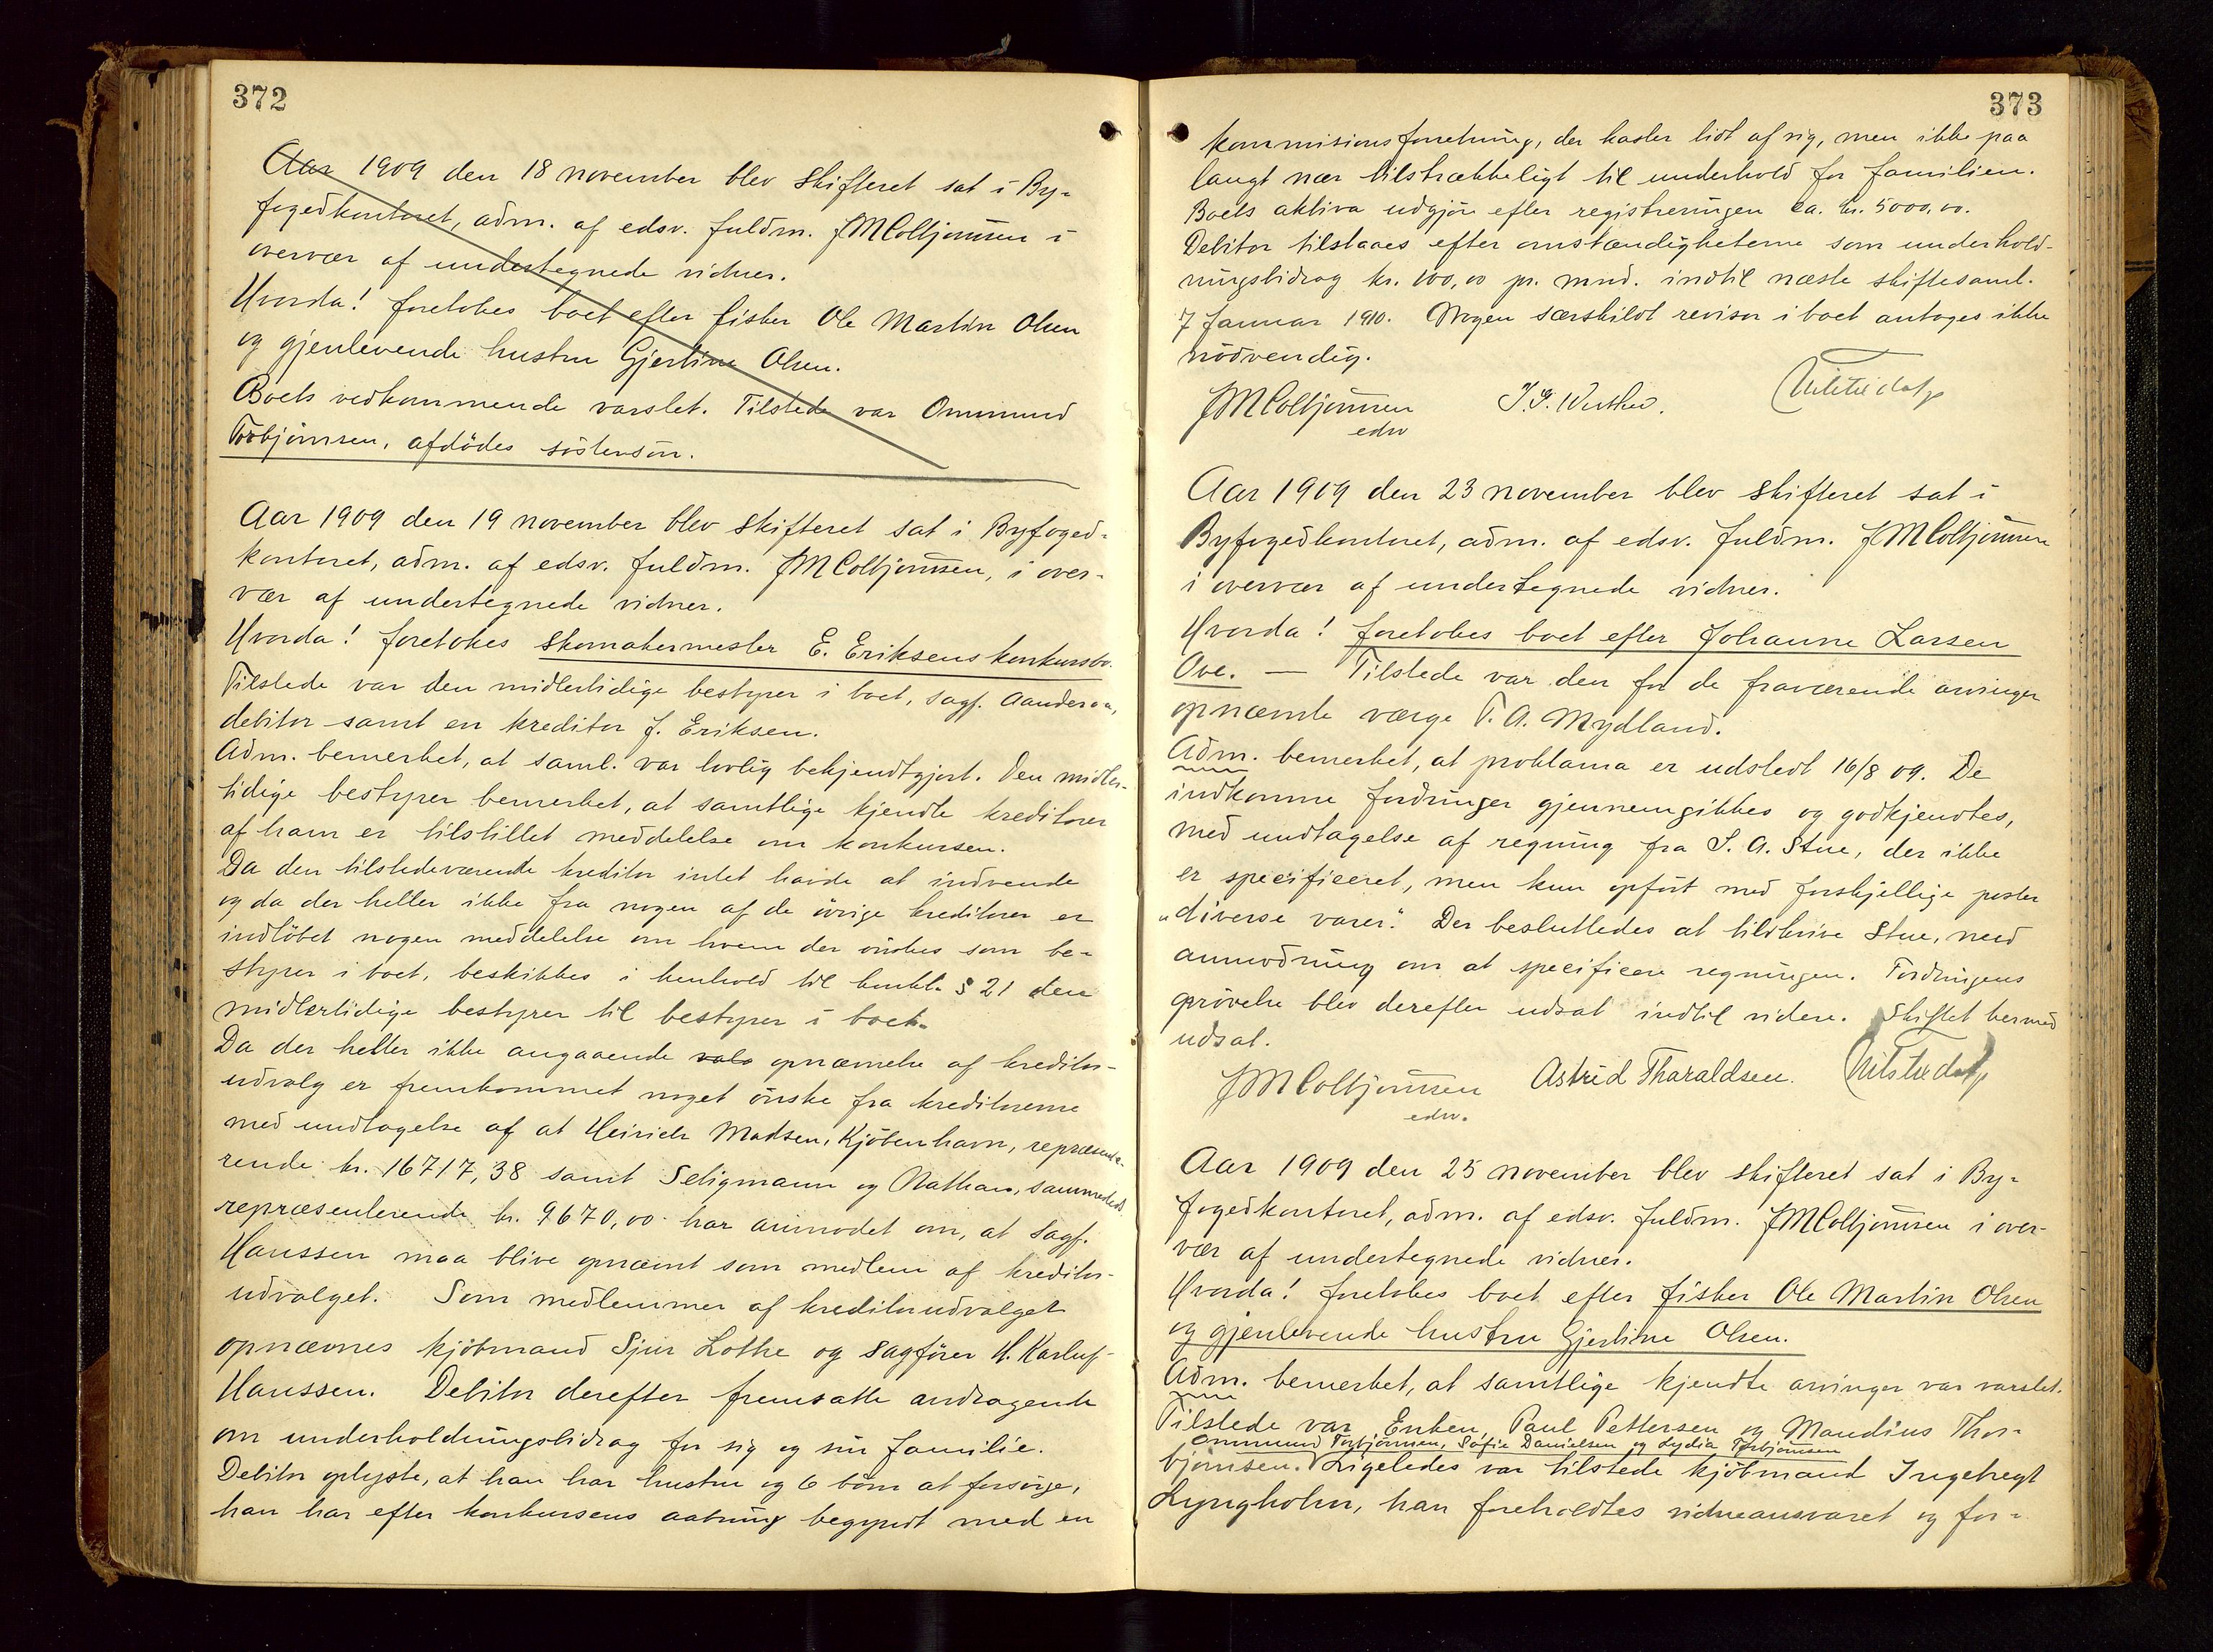 372
Aar 1909 den 18 november blev skifteret sat i By-
fogedkontoret, adm. af edsv. fuldm. JMColbjørnsen i
overvær af undertegnede vidner.
Hvorda! foretokes boet efter fisker Ole Martin Olsen
og gjenlevende hustru Gjertine Olsen.
Boets vedkommende varslet. Tilstede var Ommund
Torbjörnsen, afdödes söstersön.
Aar 1909 den 19 november blev skifteret sat i Byfoged-
kontoret, adm. af edsv. fuldm. JMColbjørnsen, i over-
vær af undertegnede vidner.
Hvorda! foretokes skomakermester E. Eriksens konkursbo.
Tilstede var den midlertidige bestyrer i boet, sagf. Aanderaa,
debitor samt en kreditor J. Eriksen.
Adm. bemerket, at saml. var lovlig bekjendtgjort. Den midler-
tidige bestyrer bemerket, at samtlige kjendte kreditorer
af ham er tilstillet meddelelse om konkursen.
Da den tilstedeværende kreditor intet havde at indvende
og da der heller ikke fra nogen af de övrige kreditorer er
indlöbet nogen meddelelse om hvem der önskes som be-
styrer i boet, beskikkes i henhold til konkl. § 21 den
midlertidige bestyrer til bestyrer i boet.
Da der heller ikke angaaende valg opnævnelse af kreditor-
udvalg er fremkommet noget önske fra kreditorerne
med undtagelse af at Heinich Madsen, Kjöbenhavn, repræsente-
rende kr. 16717,38 samt Seligmann og Nathan, sammesteds
repræsenterende kr. 9670,00 har anmodet om, at sagf.
Hanssen maa blive opnævnt som medlem af kreditor-
udvalget. Som medlemmer af kreditorudvalget
opnævnes kjöbmand Sjur Lothe og sagförer H. Karluf-
Hanssen. Debitor derefter fremsatte andragende
om underholdningsbidrag for sig og sin familie.
Debitor oplyste, at han har hustru og 6 börn at forsörge,
han har efter konkursens aabning begyndt med en
373
kommisionsforretning, der kaster lidt af sig, men ikke paa
langt nær tilstrækkeligt til underhold for familien.
Boets aktiva udgjör efter registreringen ca. kr. 5000,00.
Debitor tilstaaes efter omstændigheterne som underhold-
ningsbidrag kr. 100,00 pr. mnd. indtil næste skiftesaml.
7 Januar 1910. Nogen særskildt revisor i boet antages ikke
nödvendig.
JMColbjørnsen
edsv
Aar 1909 den 23 november blev skifteret sat i
Byfogedkontoret, adm. af edsv. fuldm. JMColbjørnsen
i overvær af undertegnede vidner.
Hvorda! foretokes boet efter Johanne Larsen
Ove. — Tilstede var den for de fraværende arvinger
opnævnte værge T. A. Mydland.
Adm. bemerket, at proklama er udstedt 16/8 09. De
indkomne fordringer gjennemgikkes og godkjendtes,
med undtagelse af regning fra S. A. Stue, der ikke
er specificeret, men kun opfört med forskjellige poster
"diverse varer". Der besluttedes at tilskrive Stue, med
anmodning om at specificere regningen. Fordringens
prövelse blev derefter udsat indtil videre. Skiftet hermed
udsat.
JMColbjørnsen Astrid Tharaldsen.
edsv.
Aar 1909 den 25 november blev skifteret sat i By-
fogedkontoret, adm. af edsv. fuldm. JMColbjørnsen i over-
vær af undertegnede vidner.
Hvorda! foretokes boet efter fisker Ole Martin Olsen
og gjenlevende hustru Gjertine Olsen.
Adm. bemerket, at samtlige kjendte arvinger var varslet.
Tilstede var Enken, Paul Pettersen og Maudius Thor-
Ommund Torbjörnsen, Sofie Danielsen og Lydia Torbjörnsen
bjørnsen. Ligeledes var tilstede kjöbmand Ingebregt
Lyngholm, han foreholdtes vidneansvaret og for-